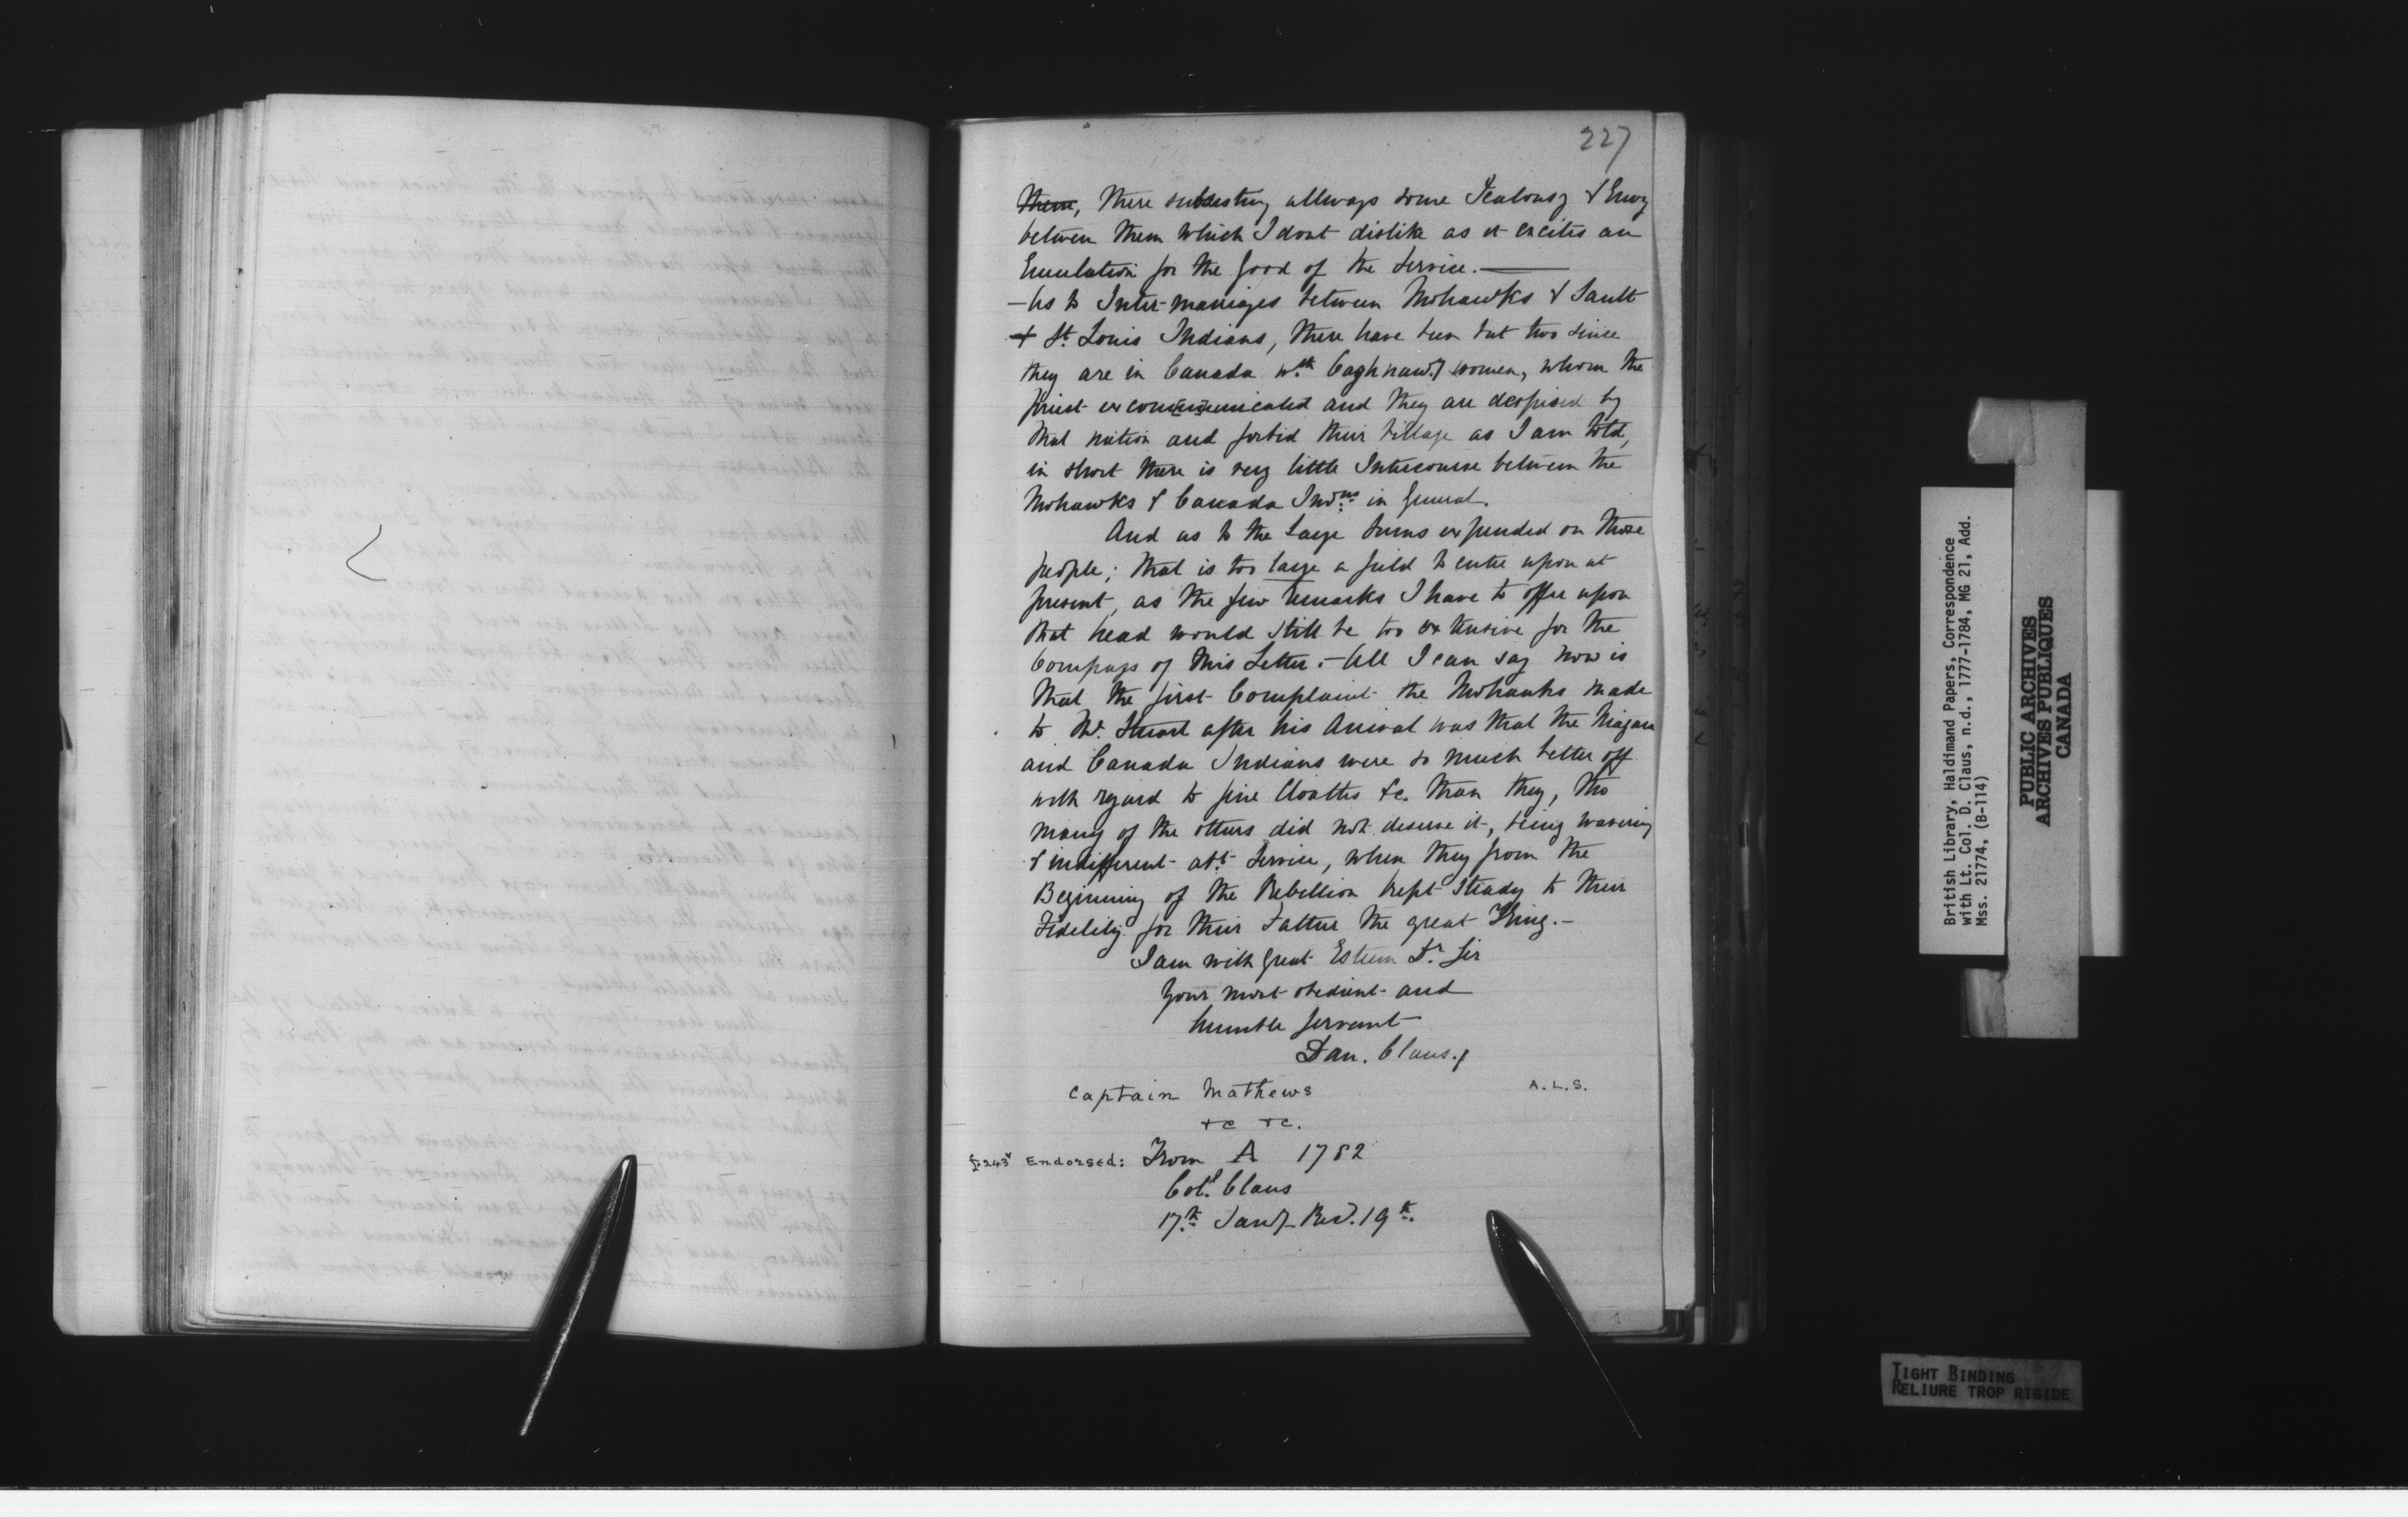 227
them, there subsisting allways some Jealousy & Envy
between them which I dont dislike as it excites an
Emulation for the good of the Service. —
— As to Inter-marriages between Mohawks & Sault
+ St. Louis Indians, there have been but two since
they are in Canada wth. Caghnawy. women, whom the
priest excommunicated and they are despised by
that nation and forbid their village as I am told,
in short there is very little Intercourse between the
Mohawks & Canada Indns. in General.
And as to the large sums expended on those
people; that is too large a field to enter upon at
present, as the few remarks I have to offer upon
that head would still be too extensive for the
Compass of this Letter. — All I can say now is
that the first Complaint the Mohawks made
to Mr. Stuart after his Arrival was that the Niagara
and Canada Indians were so much better off
with regard to fine Cloaths &c. than they, tho
many of the others did not deserve it, being wavering
& indifferent abt. Service, when they from the
Beginning of the Rebellion kept steady to their
Fidelity for their Father the great King. —
I am with great Esteem Dr. Sir
Your most obedient and
humble servant
Dan. Claus.
Captain Mathews
A.L.S.
&c &c.
f.243v Endorsed: From A 1782
Coll. Claus
17th. Jany. Recd. 19th.
British Library, Haldimand Papers, Correspondence
with Lt. Col. D. Claus, n.d., 1777-1784, MG 21, Add.
Mss. 21774, (B-114)
PUBLIC ARCHIVES
ARCHIVES PUBLIQUES
CANADA
TIGHT BINDING
RELIURE TROP RIGIDE